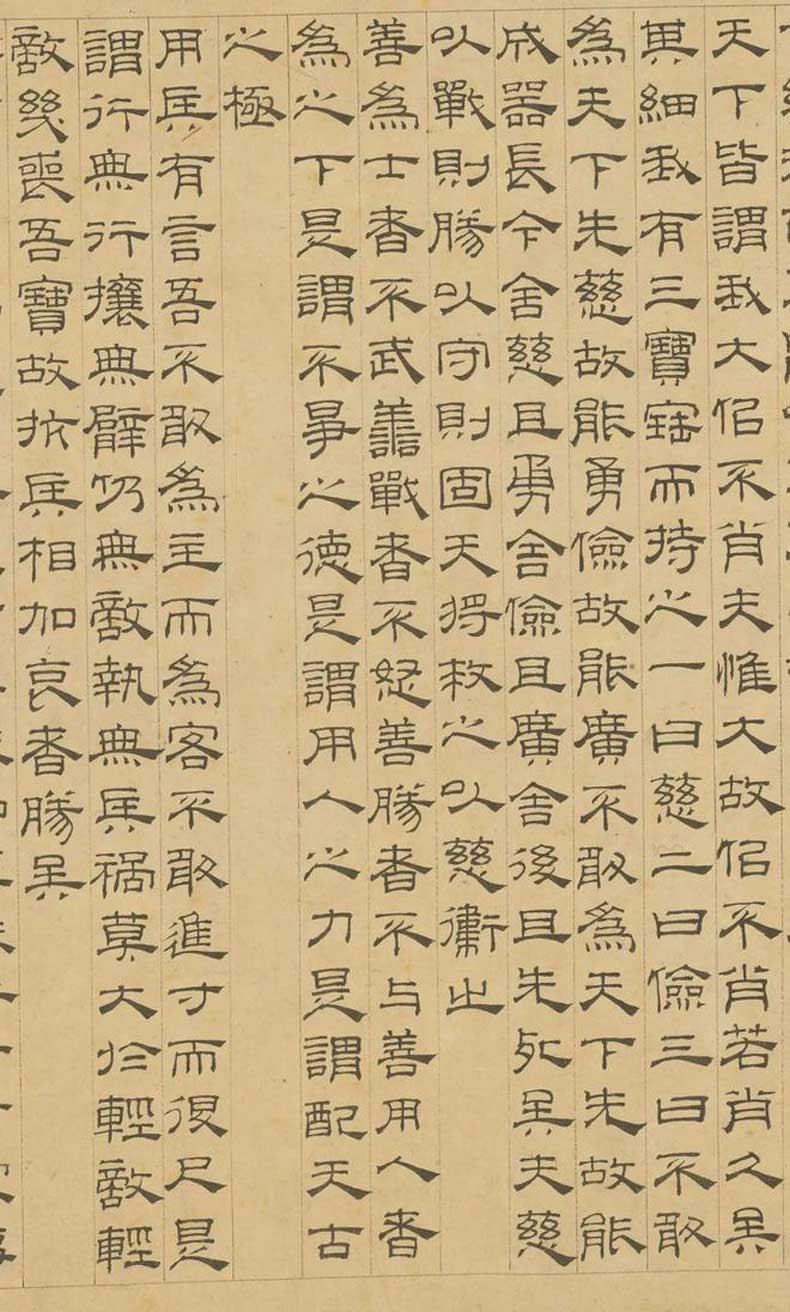 天下皆謂我大佀不肖夫惟大故佀不肖若肖久矣
其細我有三寶寚而持之一曰慈二曰儉三曰不敢
為天下先慈故能勇儉故能廣不敢為天下先故能
成器長今舍慈且勇舍儉且廣舍後且先死矣夫慈
以戰則勝以守則固天將救之以慈衛之
善為士者不武譱戰者不怒善勝者不与善用人者
為之下是謂不爭之德是謂用人之力是謂配天古
之極
用兵有言吾不敢為主而為客不敢進寸而退尺是
謂行無行攘無臂仍無敵執無兵禍莫大於輕敵輕
敵幾喪吾寶故抗兵相加哀者勝矣